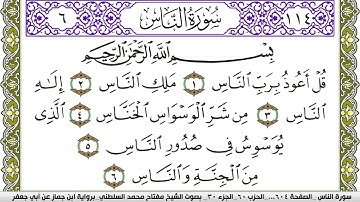 ١١٤ سُورَةُ النَّاسِ ٦
بِسْمِ اللَّهِ الرَّحْمَٰنِ الرَّحِيمِ
قُلْ أَعُوذُ بِرَبِّ النَّاسِ ١ مَلِكِ النَّاسِ ٢ إِلَٰهِ
النَّاسِ ٣ مِن شَرِّ الْوَسْوَاسِ الْخَنَّاسِ ٤ الَّذِي
يُوَسْوِسُ فِي صُدُورِ النَّاسِ ٥
مِنَ الْجِنَّةِ وَالنَّاسِ ٦
سورة الناس .. الصفحة ٦٠٤ ... الحزب ٦٠ .. الجزء ٣٠ .. بصوت الشيخ مفتاح محمد السلطني .. برواية ابن جماز عن أبي جعفر